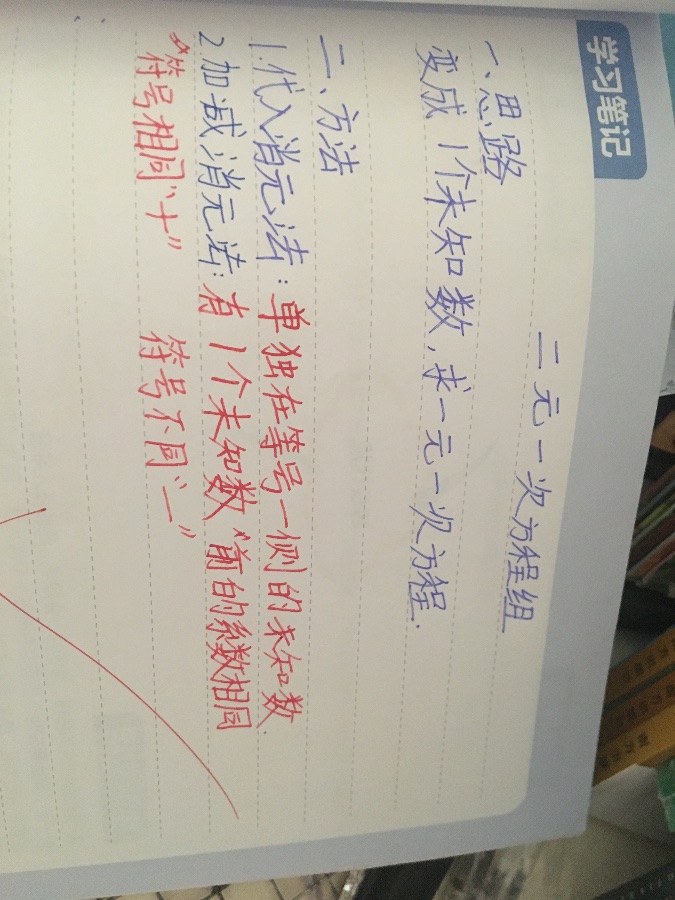 学习笔记
二元一次方程组
一、思路
变成1个未知数,求一元一次方程.
二、方法
1.代入消元法:单独在等号一侧的未知数.
2.加减消元法:有1个未知数前的系数相同
符号相同“十” 符号不同“一”